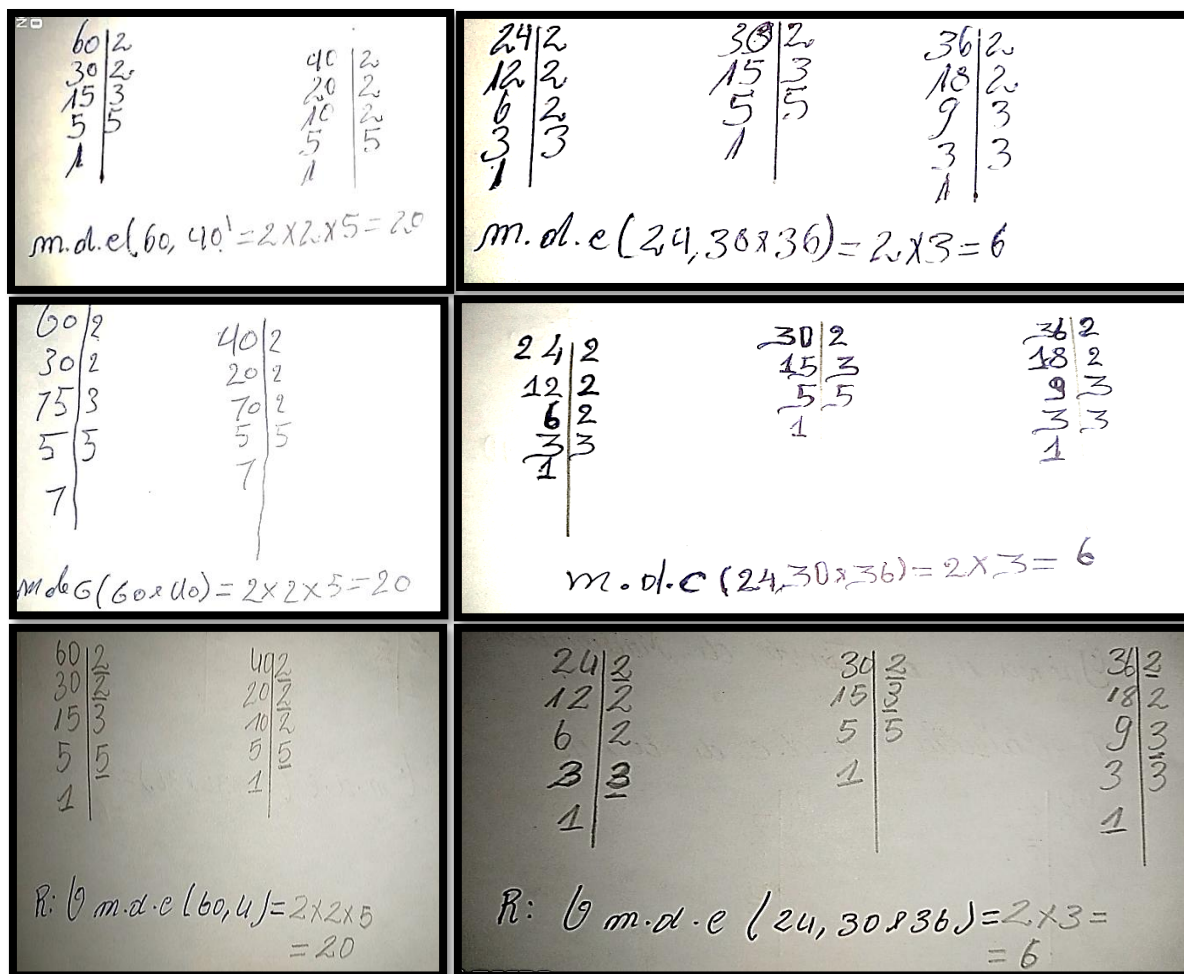 20
60|2
30|2
15|3
5|5
1|
40|2
20|2
10|2
5|5
1|
m.d.e(60, 40) = 2×2×5 = 20
24|2
12|2
6|2
3|3
1|
30|2
15|3
5|5
1|
36|2
18|2
9|3
3|3
1|
m.d.e (24, 30 e 36) = 2×3 = 6
60|2
30|2
15|3
5|5
1|
40|2
20|2
10|2
5|5
1|
(60 e 40) = 2×2×5 = 20
24|2
12|2
6|2
3|3
1|
30|2
15|3
5|5
1|
36|2
18|2
9|3
3|3
1|
m.d.c (24, 30 e 36) = 2×3 = 6
60|2
30|2
15|3
5|5
1|
40|2
20|2
10|2
5|5
1|
R: O m.d.c (60, 4) = 2×2×5
= 20
24|2
12|2
6|2
3|3
1|
30|2
15|3
5|5
1|
36|2
18|2
9|3
3|3
1|
R: O m.d.e (24, 30 e 36) = 2×3 =
= 6